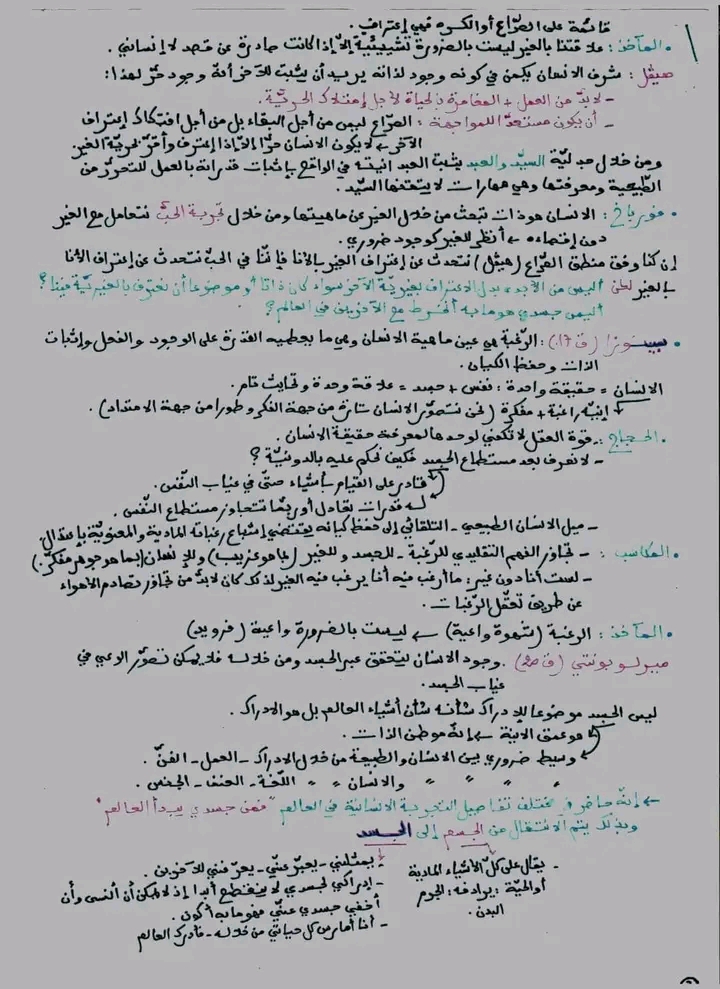 قائمة على الصّراع أو الكسره فهي إعتراف.
• المآخذ: علاقتنا بالغير ليست بالضرورة تشييئيّة إلاّ إذا كانت صادرة عن قصد لا إنساني.
هيقل: شرف الانسان يكمن في كونه وجود لذاته يريد أن يثبت للآخر أنّه وجود حرّ لهذا:
- لابدّ من العمل + المغامرة بالحياة لأجل إمتلاك الحريّة.
- أن يكون مستعدّا للمواجهة: الصّراع ليس من أجل البقاء بل من أجل افتكاك إعتراف
الآخر ← لا يكون الانسان حرّا إلاّ إذا إعترف وأقرّ بحريّة الغير
ومن خلال جدليّة السيّد والعبد يثبت العبد انيته في الواقع بإثبات قدراته بالعمل للتحرّر من
الطّبيعية ومعرفتها وهي مهارات لا يتقنها السيّد.
• فورباخ: الانسان هو ذات تبحث من خلال الغير عن ماهيتها ومن خلال تجربة الحبّ نتعامل مع الغير
دون إقصاء ← أنظر للغير كوجود ضروري.
إن كنا وفق منطق الصّراع (هيڤل) نتحدث عن إعتراف الغير بالأنا فإنّنا في الحبّ نتحدث عن إعتراف الأنا
بالغير لكن أليس من الأجدر بدل الاعتراف بغيريّة الآخر سواء كان ذاتا أو موضوعا أن نعترف بالغيريّة فينا؟
أليس جسدي هو ما به أنخرط مع الآخرين في العالم؟
• سبينوزا (ق 17): الرّغبة هي عين ماهية الانسان وهي ما يعطيه القدرة على الوجود والفعل وإثبات
الذات وحفظ الكيان.
الإنسان = حقيقة واحدة: نفس + جسد = علاقة وحدة وتحايث تام.
↳ إنيّة راغبة + مفكرة (نحن نتصوّر الانسان تارة من جهة الفكر وطورا من جهة الامتداد).
• الحجاج: - قوة العقل لا تكفي لوحدها لمعرفة حقيقة الانسان.
- لا نعرف بعد مستطاع الجسد فكيف نحكم عليه بالدونيّة؟
↳ قادر على القيام بأشياء حتّى في غياب النّفس.
↳ له قدرات تعادل أو ربّما تتجاوز مستطاع النّفس.
- ميل الانسان الطبيعي - التلقائي إلى حفظ كيانه يقتضي إشباع رغباته المادية والمعنويّة بإعتدال
• المكاسب: - تجاوز الفهم التقليدي للرّغبة - للجسد وللغير (بما هو غريب) وللإنسان (بما هو جوهر مفكّر.)
- لست أنا دون غير: ما أرغب فيه أنا يرغب فيه الغير لذلك كان لابدّ من تجاوز تصادم الأهواء
عن طريق تعقّل الرّغبات.
• المآخذ: الرغبة (شهوة واعية) ← ليست بالضرورة واعية (فرويد)
ميرلوبونتي (ق 20): وجود الانسان يتحقق عبر الجسد ومن خلاله فلا يمكن تصوّر الوعي في
غياب الجسد.
ليس الجسد موضوعا للإدراك شأنه شأن أشياء العالم بل هو الادراك.
↳ هو عمق الانية ← إنّه موطن الذات.
↳ وسيط ضروري بين الانسان والطبيعة من خلال الادراك - العمل - الفنّ.
" " " " والانسان " " اللّغة - العنف - الجنس.
← إنّه حاضر في مختلف تفاصيل التجربة الانسانيّة في العالم "فمن جسدي يبدأ العالم"
وبذلك يتم الانتقال من الجسم إلى الجسد
- يقال على كلّ الأشياء المادية
أو الحيّة: يرادفه: الجرم
البدن.
- يمثلني - يعبّر عنّي - يعرّفني للآخرين.
- إدراكي لجسدي لا ينقطع أبدا إذ لا يمكن أن أنسى وأن
أخفي جسدي عنّي فهو ما به أكون.
- أنا أمارس كل حياتي من خلاله - فأدرك العالم